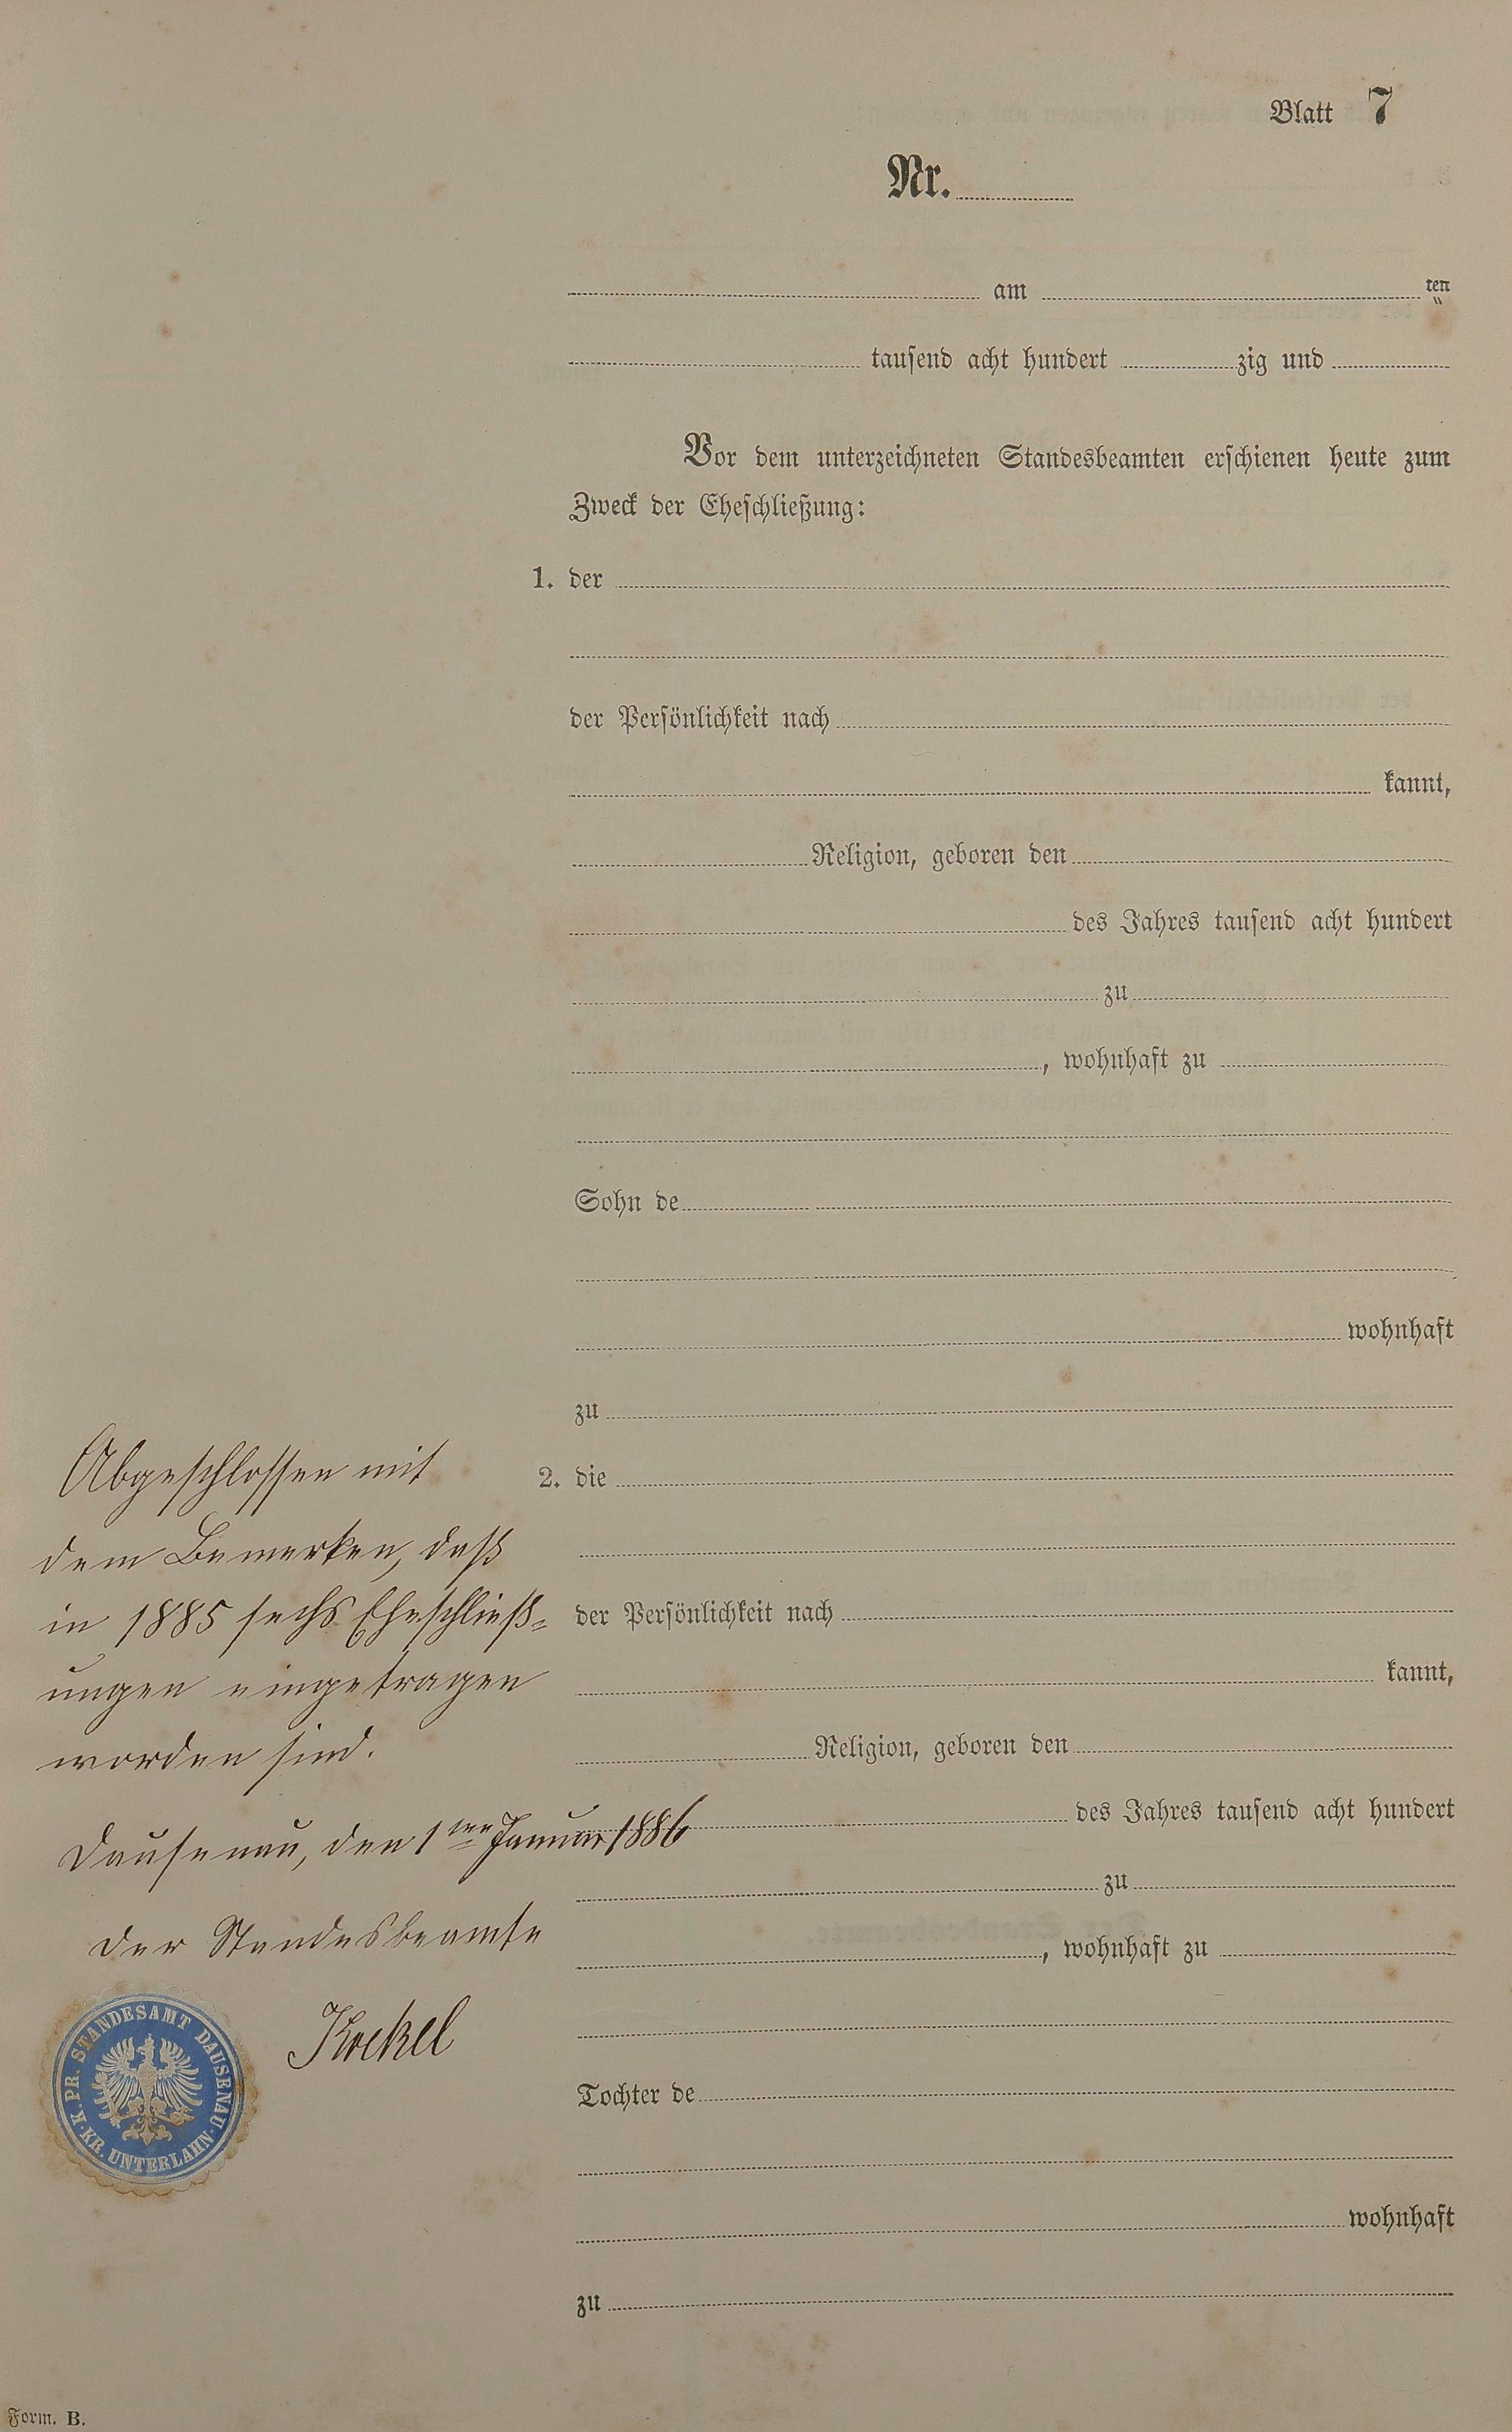 Blatt 7
Nr.
am ten
tausend acht hundert zig und
Vor dem unterzeichneten Standesbeamten erschienen heute zum
Zweck der Eheschließung:
1. der
der Persönlichkeit nach
kannt,
Religion, geboren den
des Jahres tausend acht hundert
zu
, wohnhaft zu
Sohn de
wohnhaft
zu
2. die
der Persönlichkeit nach
kannt,
Religion, geboren den
des Jahres tausend acht hundert
zu
, wohnhaft zu
Tochter de
wohnhaft
zu
Abgeschlossen mit
dem Bemerken, daß
in 1885 sechs Eheschließ=
ungen eingetragen
worden sind.
Dausenau, den 1ten Januar 1886
Der Standesbeamte
K. PR. STANDESAMT DAUSENAU · KR. UNTERLAHN ·
Form. B.